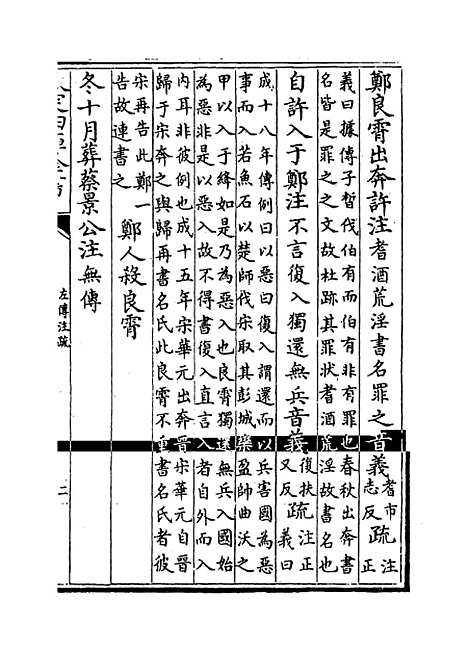 鄭良霄出奔許注耆酒荒淫書名罪之音義耆市志反疏注正
義曰據傳子晳伐伯有而伯有非有罪也春秋出奔書
名皆是罪之之文故杜跡其罪狀耆酒荒淫故書名也
自許入于鄭注不言復入獨還無兵音義復扶又反疏注正義曰
成十八年傳例曰以惡曰復入謂還而以兵害國為惡
事而入若魚石以楚師伐宋取其彭城欒盈帥曲沃之
甲以入于絳如是乃為惡入也良霄獨還無兵入國始
為惡非是以惡入故不得書復入直言入者自外而入
內耳非彼例也成十五年宋華元出奔晉宋華元自晉
歸于宋奔之與歸再書名氏此良霄不重書名氏者彼
宋再告此鄭一告故連書之 鄭人殺良霄
冬十月葬蔡景公注無傳
左傳注疏